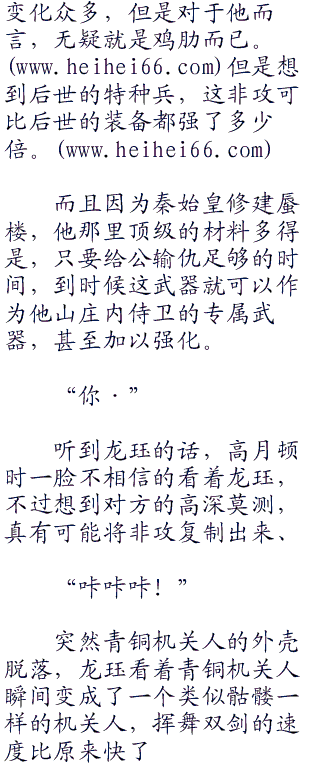 变化众多，但是对于他而
言，无疑就是鸡肋而已。
(www.heihei66.com)但是想
到后世的特种兵，这非攻可
比后世的装备都强了多少
倍。(www.heihei66.com)
而且因为秦始皇修建蜃
楼，他那里顶级的材料多得
是，只要给公输仇足够的时
间，到时候这武器就可以作
为他山庄内侍卫的专属武
器，甚至加以强化。
“你·”
听到龙珏的话，高月顿
时一脸不相信的看着龙珏，
不过想到对方的高深莫测，
真有可能将非攻复制出来、
“咔咔咔！”
突然青铜机关人的外壳
脱落，龙珏看着青铜机关人
瞬间变成了一个类似骷髅一
样的机关人，挥舞双剑的速
度比原来快了